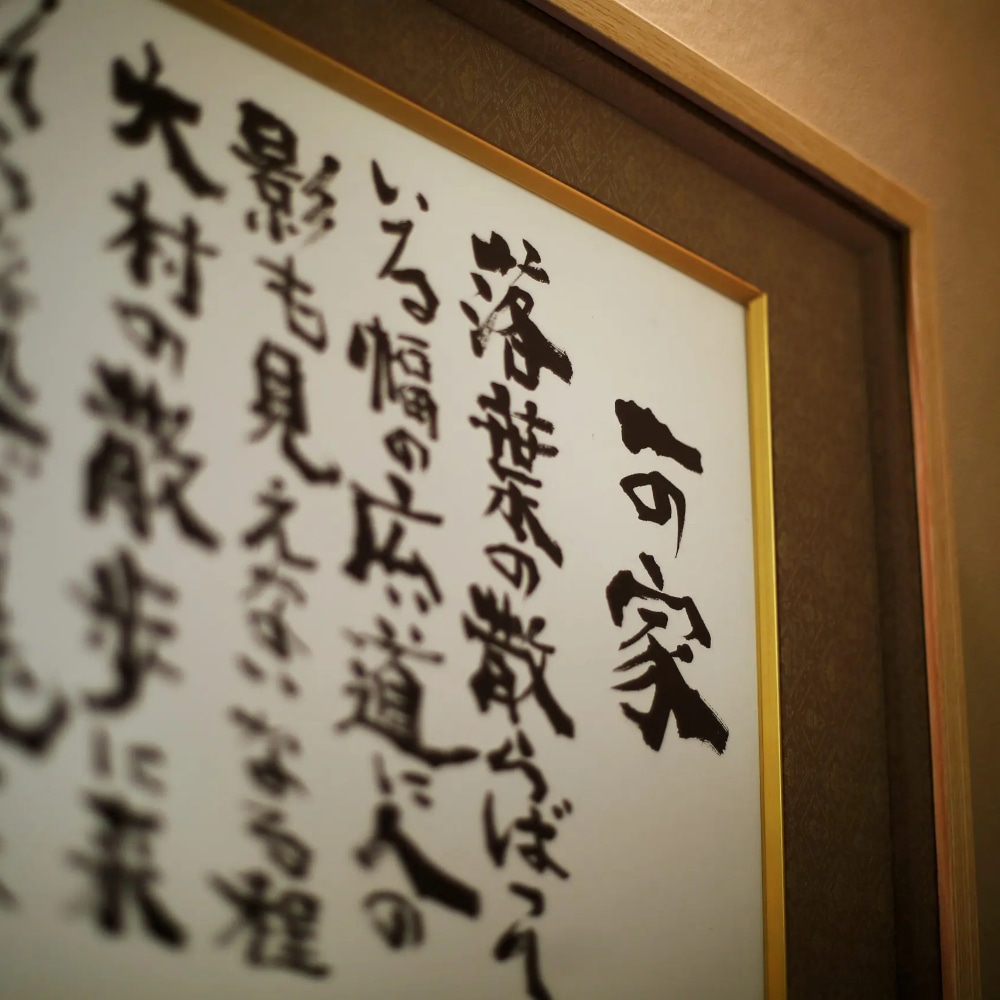 一の家
落葉の散らばって
いる幅の広い道に人の
影も見えないなる程
大村の散歩に来